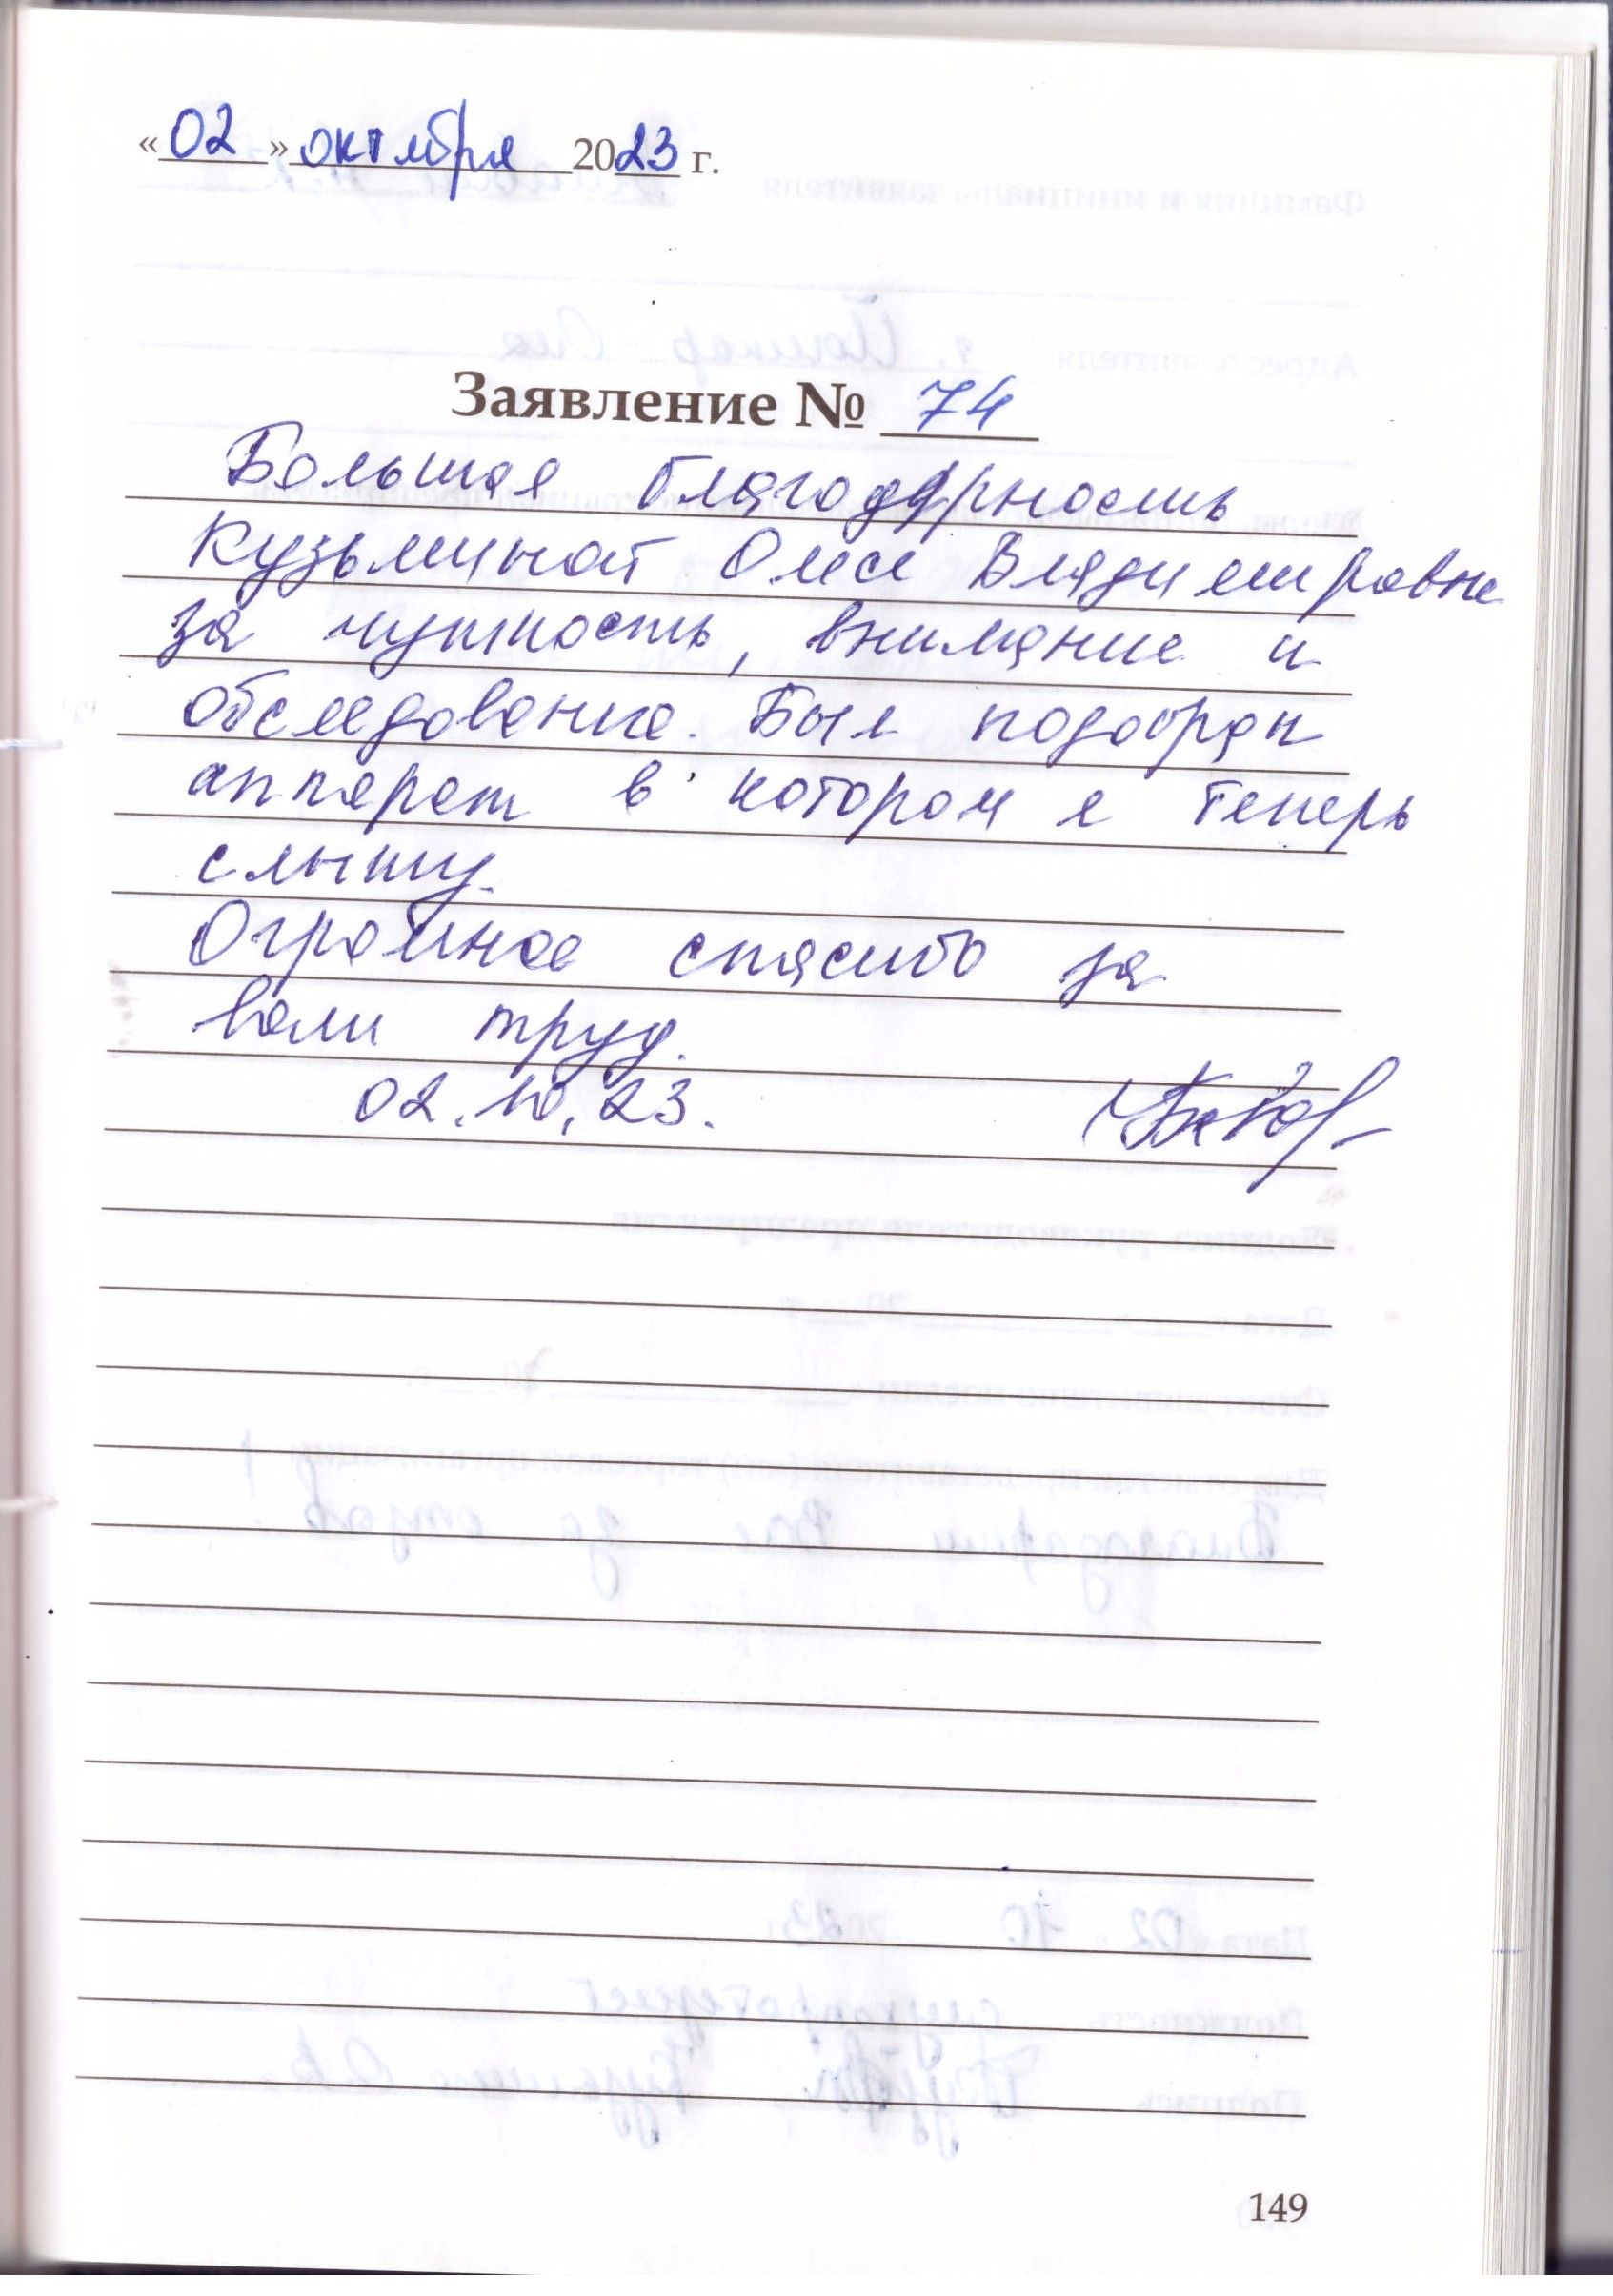 «02» октября 2023 г.
Заявление № 74
Большая благодарность
Кузьминой Олесе Владимировне
за чуткость, внимание и
обследование. Был подобран
аппарат в котором я теперь
слышу.
Огромное спасибо за
ваш труд.
02.10.23.
149